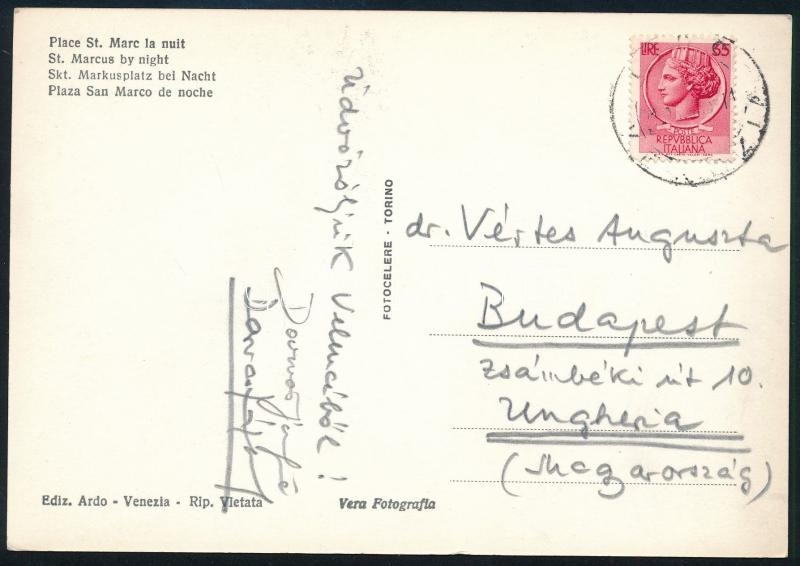 Place St. Marc la nuit
St. Marcus by night
Skt. Markusplatz bei Nacht
Plaza San Marco de noche
LIRE 35
POSTE
REPVBBLICA
ITALIANA
Üdvözöljük Velencéből!
FOTOCELERE - TORINO
dr. Vértes Auguszta
Budapest
Zsámbéki út 10.
Ungheria
(Magyarország)
Ediz. Ardo - Venezia - Rip. Vietata
Vera Fotografia